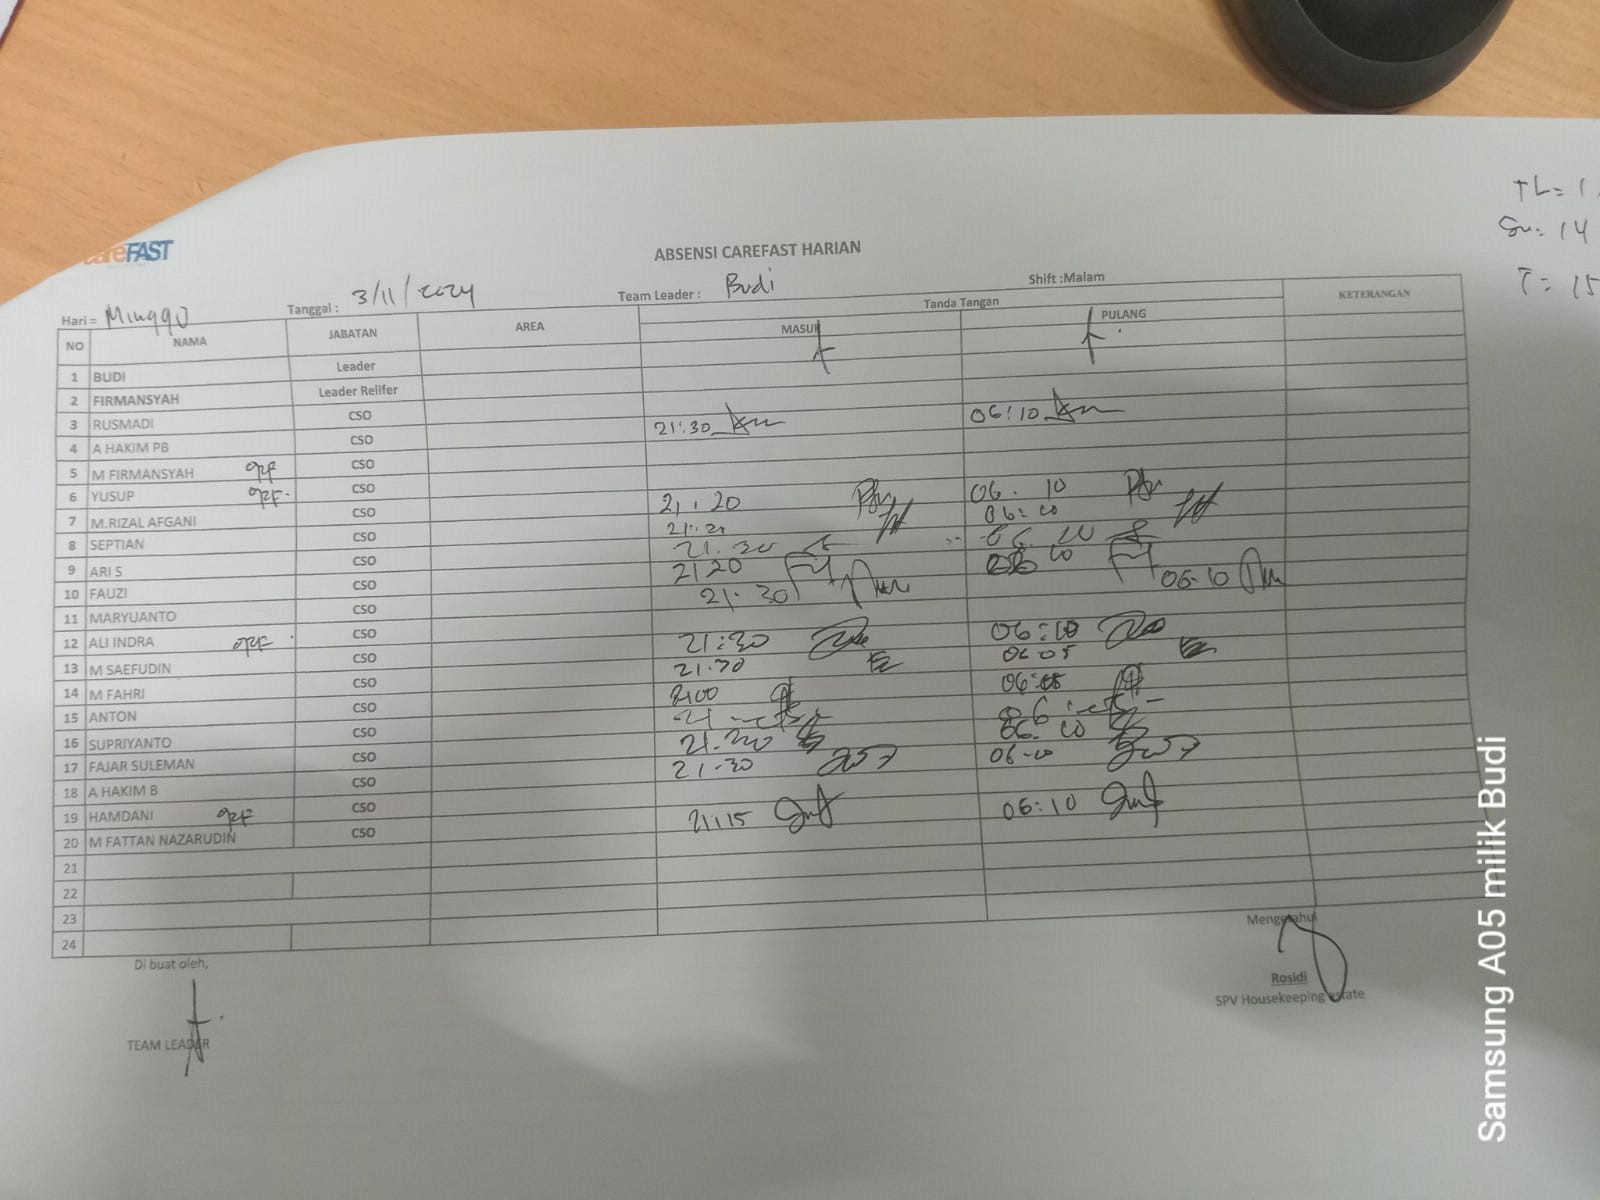 careFAST
ABSENSI CAREFAST HARIAN
TL= 1
14
T= 15
Hari = Minggu Tanggal : 3/11/2024 Team Leader : Budi Shift :Malam
NO NAMA JABATAN AREA Tanda Tangan KETERANGAN
MASUK PULANG
1 BUDI Leader
2 FIRMANSYAH Leader Relifer
3 RUSMADI CSO 21:30 06:10
4 A HAKIM PB CSO
5 M FIRMANSYAH OFF CSO
6 YUSUP OFF CSO 21.20 06.10
7 M.RIZAL AFGANI CSO 21:20 06:10
8 SEPTIAN CSO 21.30
9 ARI S CSO 21 20 06 10
10 FAUZI CSO 21.30 06.10
11 MARYUANTO CSO
12 ALI INDRA OFF CSO 21:30 06:10
13 M SAEFUDIN CSO 06 05
14 M FAHRI CSO 06:05
15 ANTON CSO 21
16 SUPRIYANTO CSO 06.10
17 FAJAR SULEMAN CSO 21.30 06.10
18 A HAKIM B CSO
19 HAMDANI OFF CSO 21:15 06:10
20 M FATTAN NAZARUDIN CSO
21
22
23
24
Di buat oleh, Mengetahui
Rosidi
TEAM LEADER SPV Housekeeping estate
Samsung A05 milik Budi